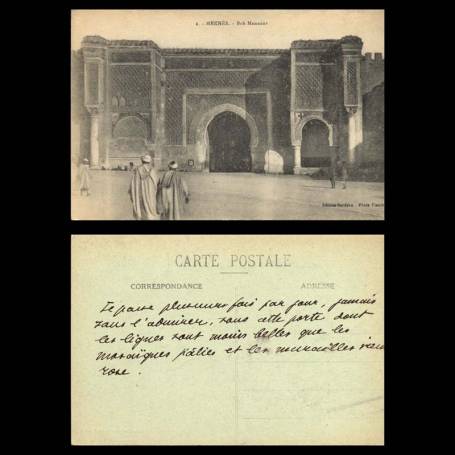 2. - MEKNÈS. - Bab Mansour
CARTE POSTALE
CORRESPONDANCE
ADRESSE
Je passe plusieurs fois par jour, jamais
sans l'admirer, sous cette porte dont
les lignes sont moins belles que les
mosaïques pâlies et les murailles vieux
rose.